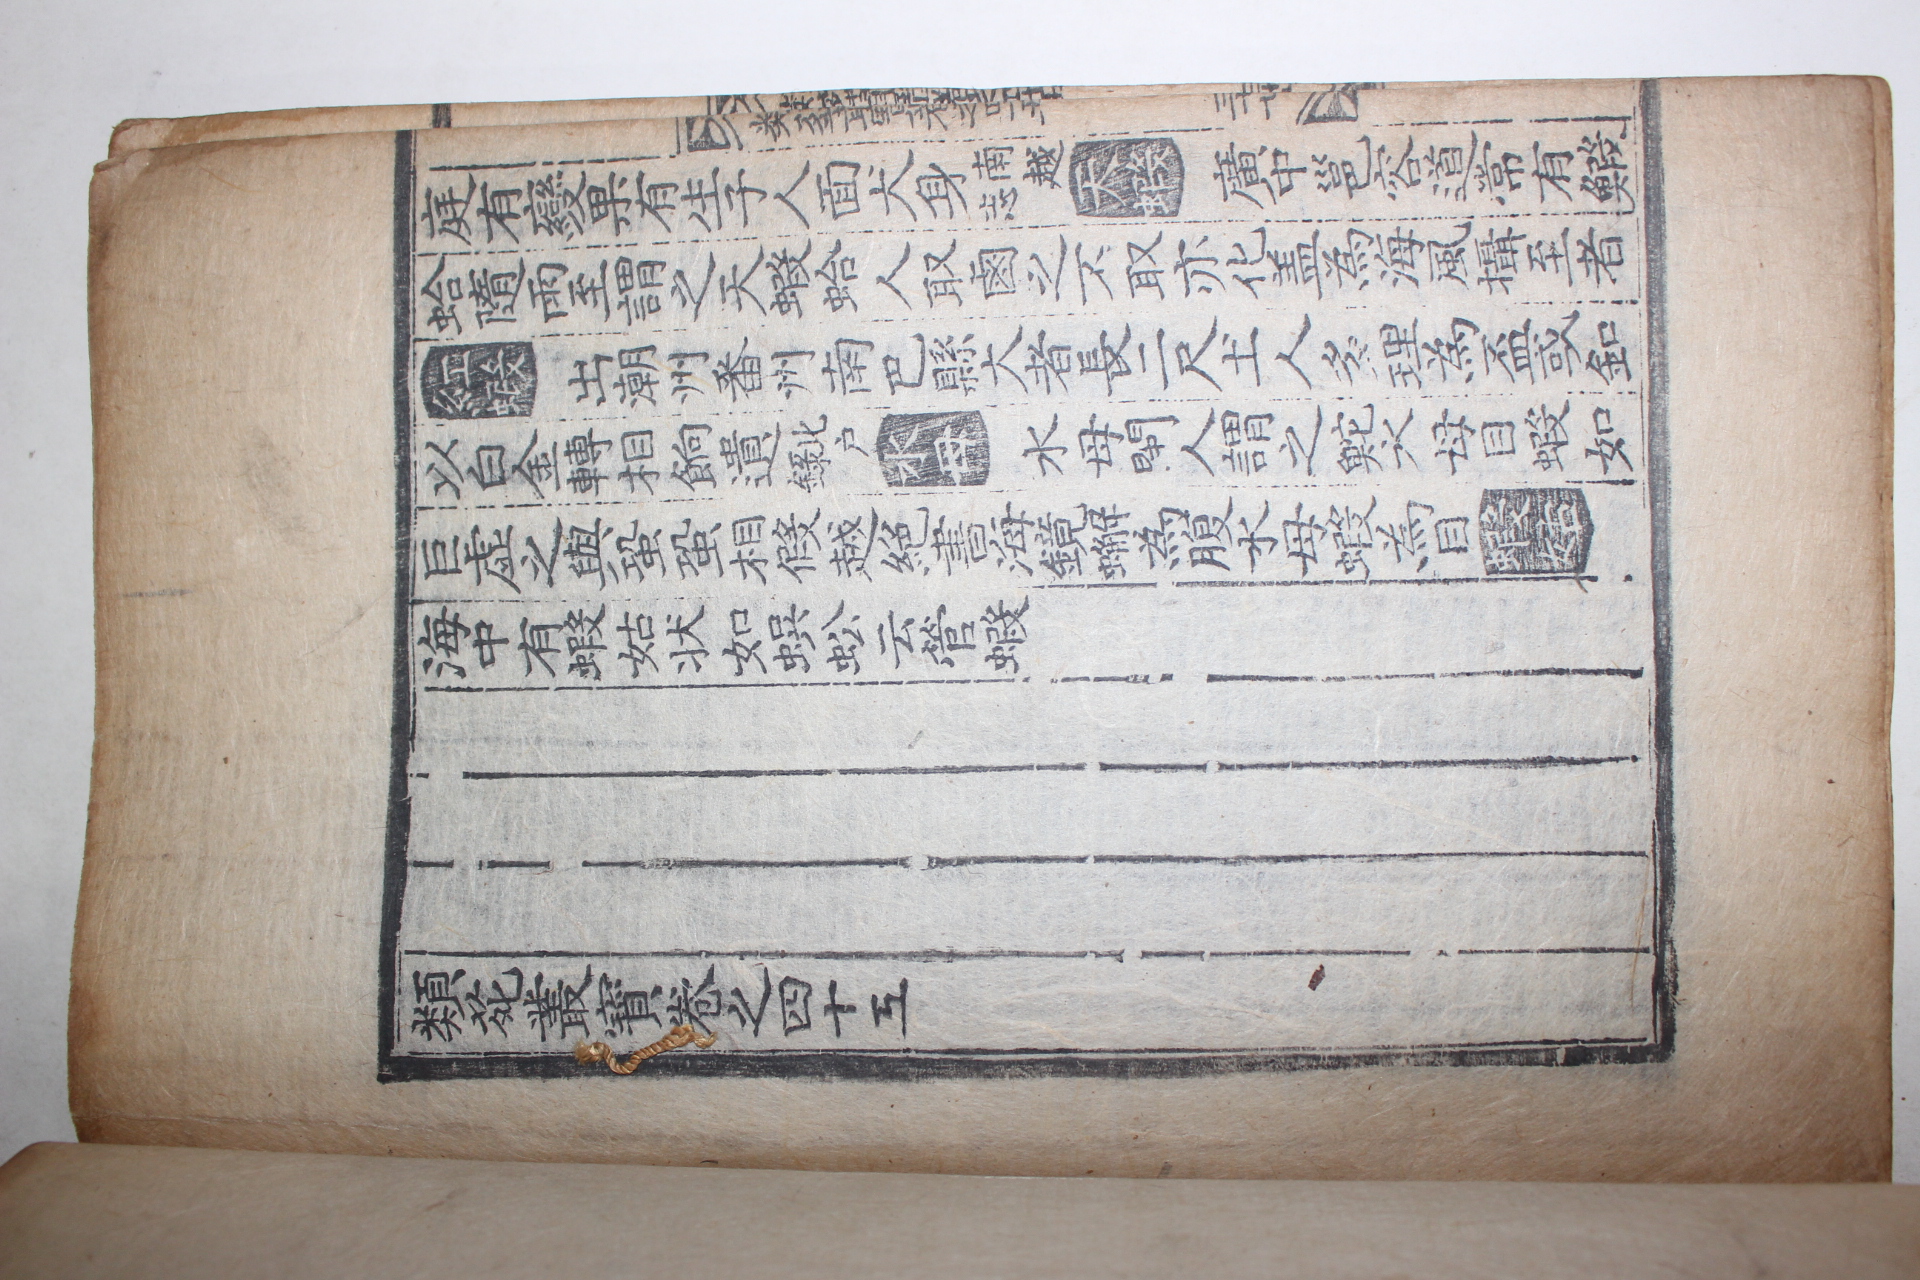 庭有變果有生子人面犬身南越志天蝦廣中邕容道常有鰕
蛤隨雨至謂之天蝦蛤人取鹵之不取亦化盖為海風攝至者
紅蝦出潮州番州南巴縣大者長二尺土人多理為盃或釦
以白金轉相餉遺北户錄水母水母閩人謂之鮀水母目蝦如
巨虛之與蛩蛩相假越絶書海鏡蠏為腹水母蝦為目蝦姑
海中有蝦姑状如蜈蚣云管蝦
類苑叢寶卷之四十五